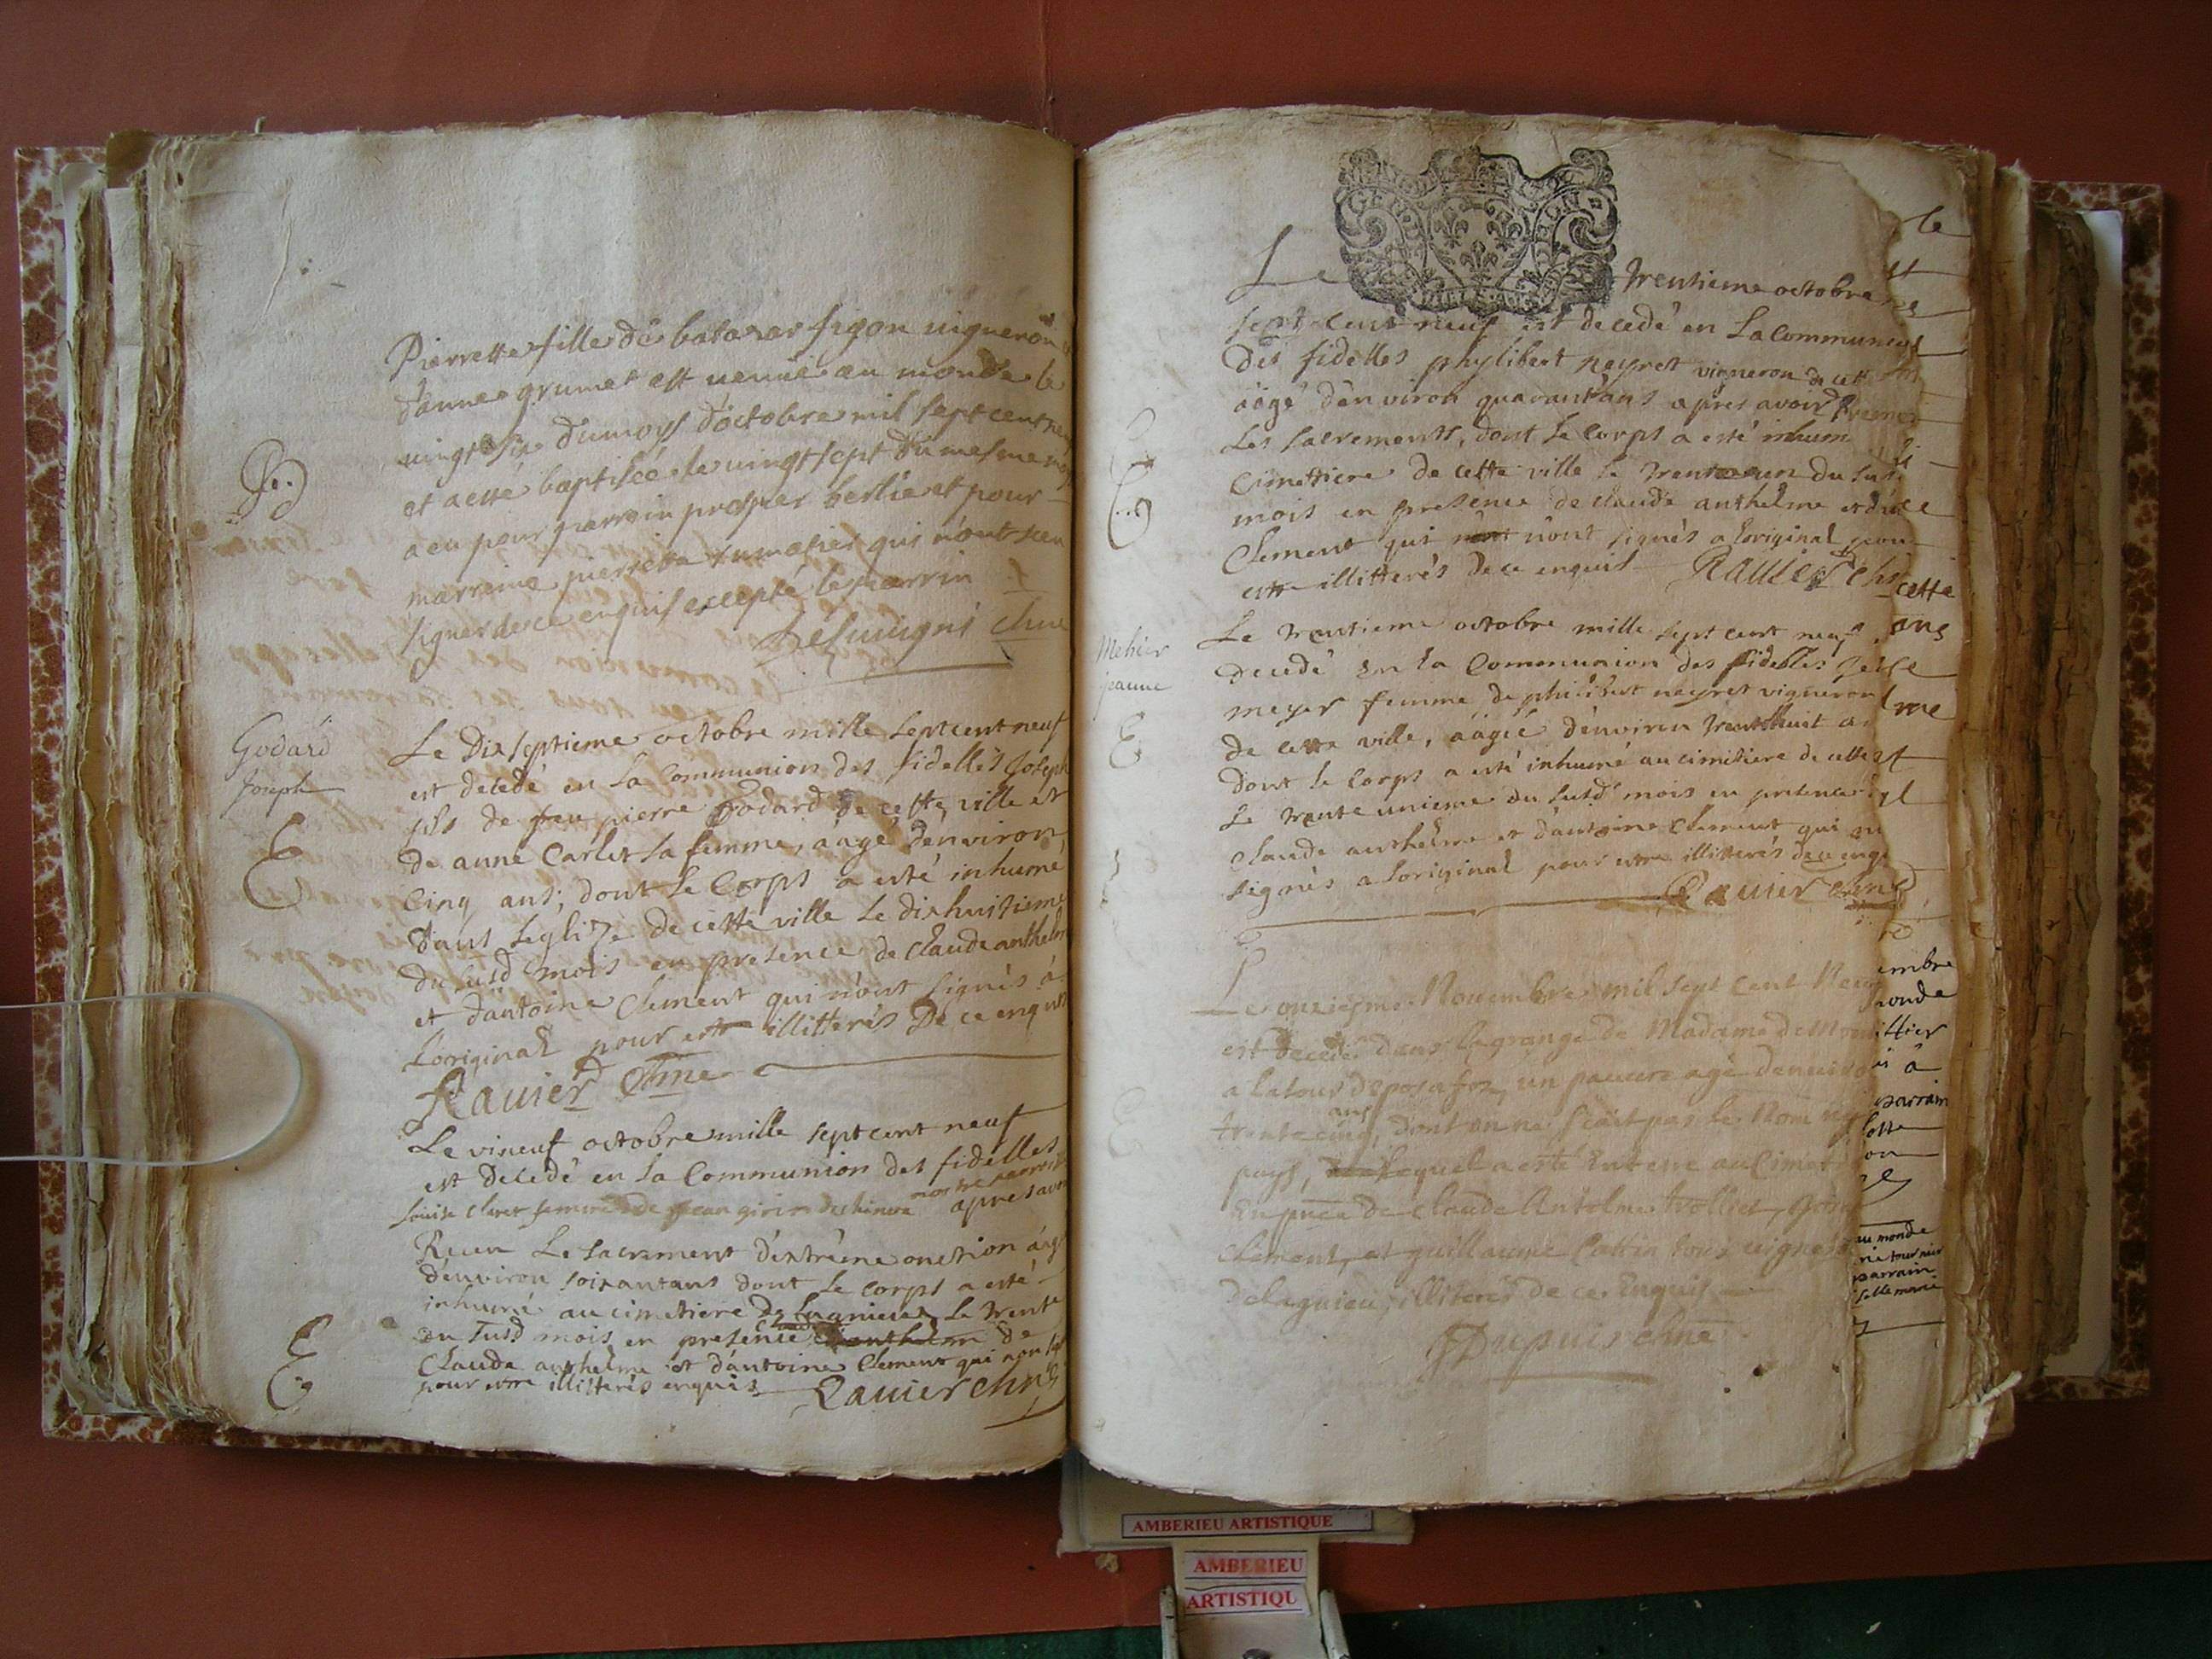 Pierrette fille de batasar figon uigneron
d'anne grumet est uenue au monde le
uingt six dumoys d'octobre mil sept cent
et a esté baptisée le uingt sept du mesme
a eu pour parrain prosper berlie et pour
marreine pierreta qui n'ont sceu
signer de ce enquis excepté le parrin
chne
Godard
Joseph
Le Dixseptieme octobre mille septcent neuf
est decedé en la Communion des fidelles Joseph
fils de feu pierre Godard de cette ville et
de anne Carlet sa femme, aagé denviron
Cinq ans, dont le Corps a esté inhumé
dans leglize de cette ville le dixhuitieme
du susd mois en presence de Claude anthelme
et dantoine Clement qui n'ont signés à
l'original pour estre illitterés De ce enquis
Rauier chne
Le vineuf octobre mille sept cent neuf
est Decedé en la Communion des fidelles
Louise Claret femme de Jean girin
nostre parroisse
apres avoir
Receu Le sacrement d'extrême onction aagé
denviron soixantans dont le corps a esté
inhumé au cimetiere de Lagnieu Le trente
du susd mois en presence de
Claude anthelme et dantoine Clement qui non
pour estre illitterés enquis Rauier chne
Le trentieme octobre
sept cent neuf est decedé en La Communion
des fidelles phylibert neyret vigneron de cette
aagé d'environ quarant'ans apres avoir
Les sacrements, dont le corps a esté inhum
Cimettiere de cette ville le trente un du sus
mois en presence de Claude anthelme
Clement qui n'ont signés a loriginal pour
estre illitterés de ce enquis Rauier chne
Mehier
jeanne
Le trentieme octobre mille sept cent neuf
decedé en la Communion des fidelles
meyer femme de philibert neyret vigneron
de cette ville, aagée d'environ trenthuit
dont le corps a esté inhumé au cimetiere de cette
Le trente unieme du susd mois en presence
Claude anthelme et d'antoine Clement qui
signés a loriginal pour estre illitterés de ce
Rauier chne
Le onziesme Nouembre mil sept cent Neuf
est decedé dans la grange de Madame de
a la tour de un pauure agé denuiron
trente cinq ans, dont on ne scait pas le Nom
pays, lequel a esté Enterré au Cimet
En pnce de Claude Antelme trollier,
Clement, et guillaume Cattin tous uignerons
de lagnieu, illiterés de ce Enquis
Dupuis chne
le
cette
ans
me
embre
monde
à
parrain
au monde
parrain
AMBERIEU ARTISTIQUE
AMBERIEU
ARTISTIQU